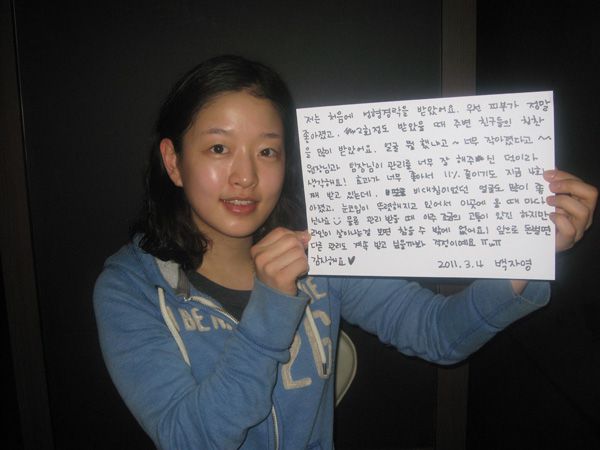 저는 처음에 성형경락을 받았어요. 우선 피부가 정말
좋아졌고, 2회정도 받았을 때 주변 친구들의 칭찬
을 많이 받았어요. 얼굴 뭘 했냐고~ 너무 작아졌다고~
원장님과 팀장님이 관리를 너무 잘 해주신 덕이라
생각해요! 효과가 너무 좋아서 11% 줄이기도 지금 4회
째 받고 있는데, 비대칭이었던 얼굴도 많이 좋
아졌고, 눈코입이 뚜렷해지고 있어서 이곳에 올 때 마다
신나요 물론 관리 받을 때 아주 조금의 고통이 있긴 하지만
라인이 살아나는걸 보면 참을 수 밖에 없어요! 앞으로 돈벌면
다른 관리도 계속 받고 싶을까봐 걱정이예요 ㅠㅠ
감사해요♥ 2011.3.4 백자영
BE M
26